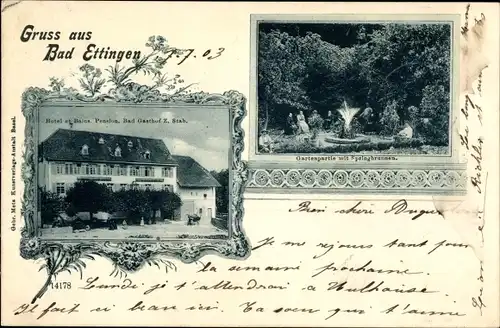 Gruss aus
Bad Ettingen
7.7.03
Hotel et Bains, Pension, Bad Gasthof Z. Stab.
Gartenpartie mit Springbrunnen.
Gebr. Metz Kunstverlags-Anstalt Basel.
14178
Bien chère
Je me réjouis tant pour
la semaine prochaine.
Lundi je t'attendrai à Mulhouse.
Il fait si beau ici. Ta soeur qui t'aime